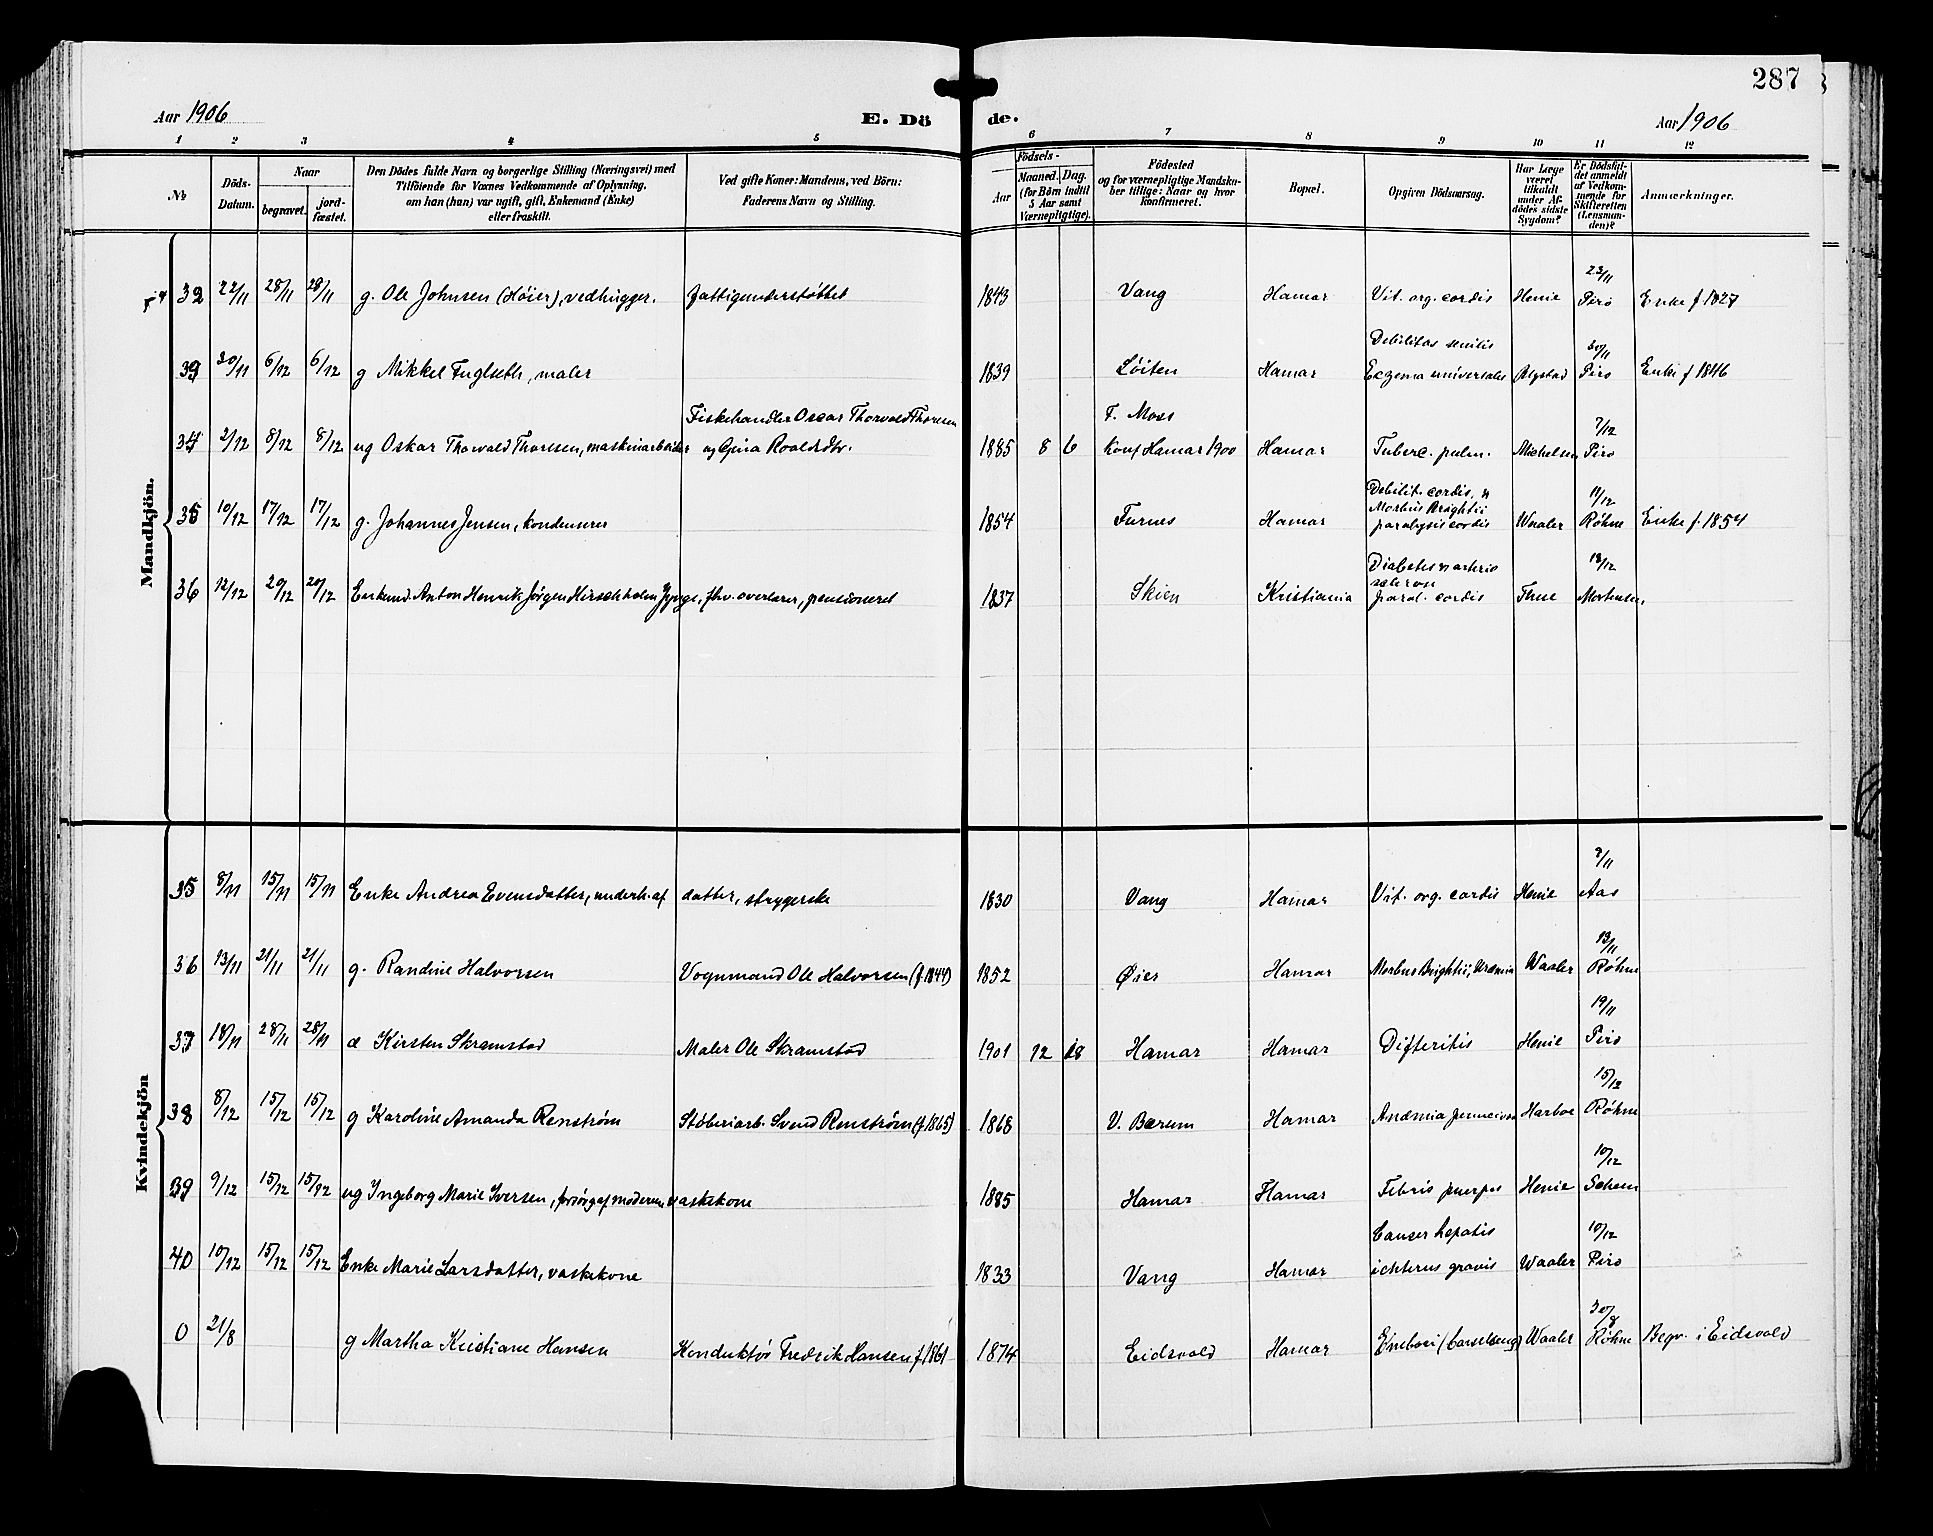 287
Aar 1906
E. Dö de.
Aar 1906
1 2 3 4 5 6 7 8 9 10 11 12
№
Döds-Datum.
Naar
begravet.
jordfæstet.
Den Dödes fulde Navn og borgerlige Stilling (Næringsvei) med
Tilföiende for Voxnes Vedkommende af Oplysning,
om han (hun) var ugift, gift, Enkemand (Enke)
eller fraskilt.
Ved gifte Koner: Mandens, ved Börn:
Faderens Navn og Stilling.
Födsels-
Aar
Maaned. Dag.
(for Börn indtil
5 Aar samt
Værnepligtige).
Födested
og for værnepligtige Mandskaber tillige: Naar og hvor
konfirmeret.
Bopæl.
Opgiven Dödsaarsag.
Har Læge
været
tilkaldt
under Afdödes sidste
Sygdom?
Er Dödsfaldet anmeldt
af Vedkommende for
Skifteretten
(Lensmanden)?
Anmærkninger.
Mandkjön.
32 22/11 28/11 28/11 g. Ole Johnsen (Høier), vedhugger. fattigunderstøttet 1843 Vang Hamar Vit. org. cordis Henie 23/11 Piro Enke f. 1827
33 30/11 6/12 6/12 g Mikkel Fuglseth, maler 1839 Løiten Hamar Debilitas senilis Eczema universalis 30/11 Piro Enke f 1846
34 2/12 8/12 8/12 ug Oskar Thorvald Thoresen, maskinarbeider Fiskehandler Oscar Thorvald Thoresen og Gina Roaldsdtr. 1885 8 6 F. Moss Konf Hamar 1900 Hamar Tuberc. pulm. Michelsen 7/12 Piro
35 10/12 17/12 17/12 g. Johannes Jensen, kondensører 1854 Furnes Hamar Debilit. cordis, Morbus Brightii paralysis cordis Waaler 11/12 Røhne Enke f. 1854
36 12/12 20/12 20/12 Enkemd. Anton Henrik Jørgen Hirschholm, fhv. overlærer, pensioneret 1837 Skien Kristiania Diabetes arteriosclerose paral. cordis Thue 13/12 Mortensen
Kvindekjön
35 8/11 15/11 15/11 Enke Andrea Evensdatter, underh. af datter, strygerske 1830 Vang Hamar Vit. org. cordis Henie 9/11 Aas
36 13/11 21/11 21/11 g. Randine Halvorsen Vognmand Ole Halvorsen (f. 1844) 1852 Øier Hamar Morbus Brightii, Uræmia Waaler 13/11 Røhne
37 18/11 28/11 28/11 æ Kirsten Skramstad Maler Ole Skramstad 1901 12 18 Hamar Hamar Difteritis Henie 19/11 Piro
38 8/12 15/12 15/12 g Karoline Amanda Renstrøm Støberiarb. Svend Renstrøm (f. 1865) 1868 V. Bærum Hamar Anæmia perniciosa Harboe 15/12 Røhne
39 9/12 15/12 15/12 ug Ingeborg Marie Iversen, forsørg. af moderen, vaskekone 1885 Hamar Hamar Febris puerper Henie 10/12 Scheen
40 10/12 15/12 15/12 Enke Marie Larsdatter, vaskekone 1833 Vang Hamar Cancer hepatis ichterus gravis Waaler 10/12 Piro
0 21/8 g Martha Kristiane Hansen Konduktør Fredrik Hansen f. 1861 1874 Eidsvold Hamar Embori (barselseng) Waaler 30/8 Røhne Begr. i Eidsvold